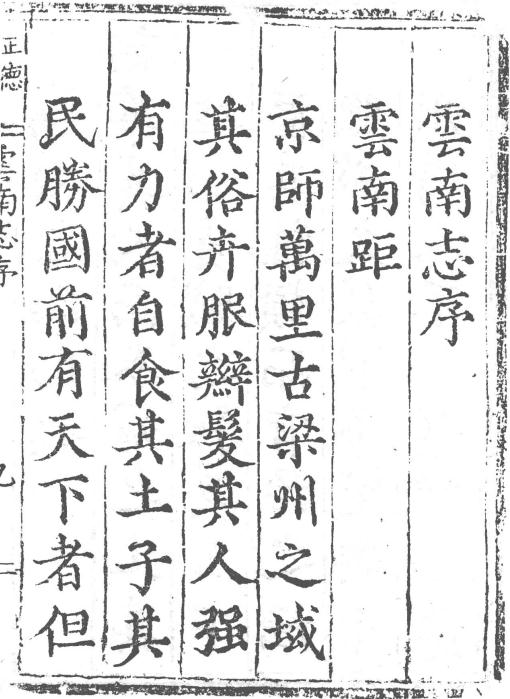 雲南志序
雲南距
京師萬里古梁州之域
其俗卉服辮髮其人强
有力者自食其土子其
民勝國前有天下者但
正德 雲南志序